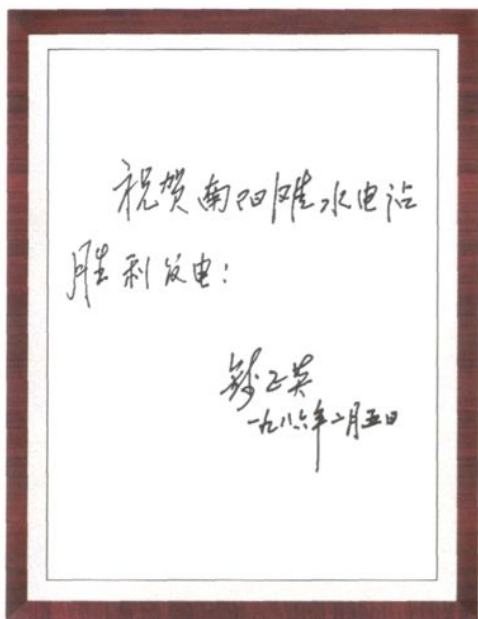 祝贺南阳滩水电站
胜利发电！
钱正英
一九八六年二月五日